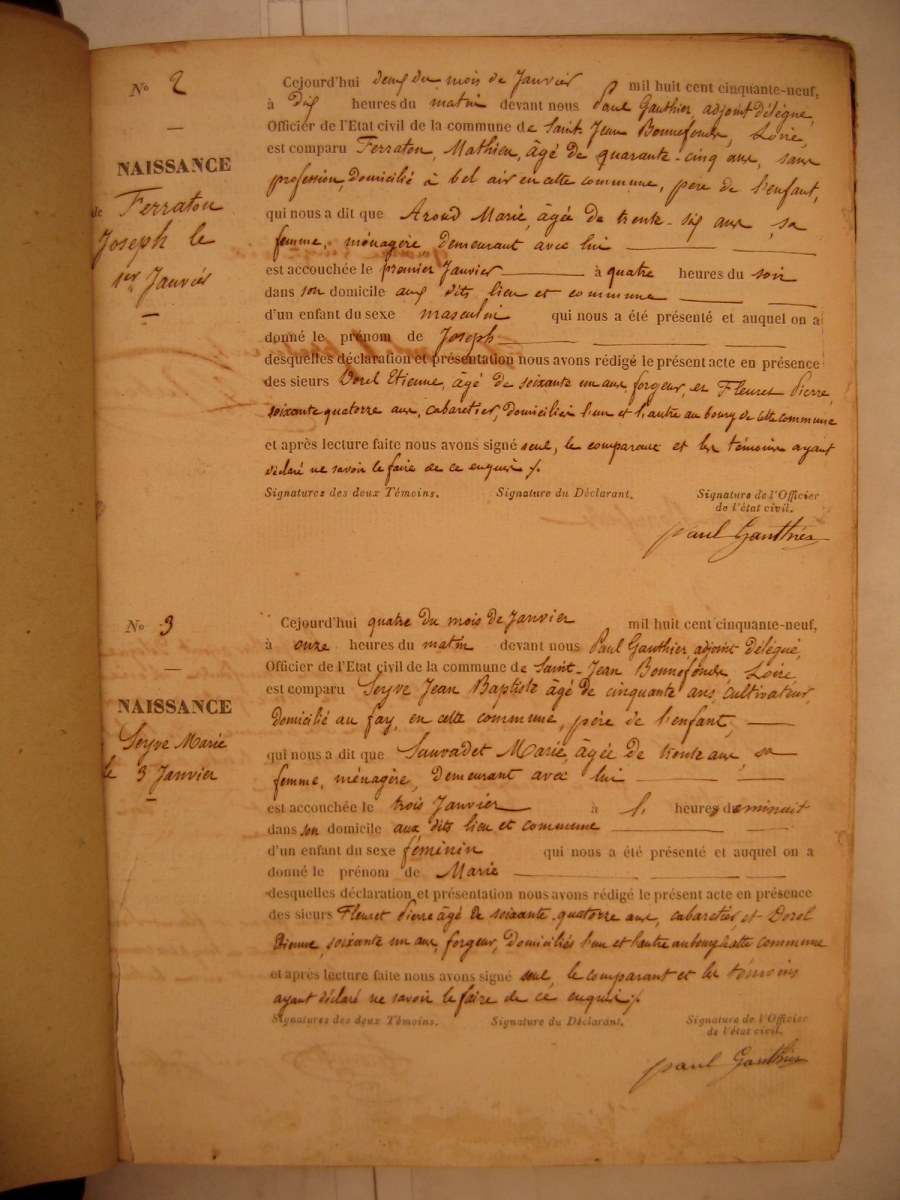 No 2
NAISSANCE
de Ferraton
Joseph le
1er Janvier
Cejourd'hui deux du mois de Janvier mil huit cent cinquante-neuf,
à dix heures du matin devant nous Paul Gauthier adjoint délégué,
Officier de l'Etat civil de la commune de Saint-Jean Bonnefonds, Loire,
est comparu Ferraton, Mathieu, âgé de quarante-cinq ans, sans
profession, domicilié à bel air en cette commune, père de l'enfant,
qui nous a dit que Aroud Marie, âgée de trente-six ans, sa
femme, ménagère demeurant avec lui
est accouchée le premier Janvier à quatre heures du soir
dans son domicile aux dits lieu et commune
d'un enfant du sexe masculin qui nous a été présenté et auquel on a
donné le prénom de Joseph
desquelles déclaration et présentation nous avons rédigé le présent acte en présence
des sieurs Dorel Etienne, âgé de soixante un ans forgeur, et Fleuret Pierre,
soixante quatorze ans, cabaretier, domiciliés l'un et l'autre au bourg de cette commune
et après lecture faite nous avons signé seul, le comparant et les témoins ayant
déclaré ne savoir le faire de ce enquis
Signatures des deux Témoins. Signature du Déclarant. Signature de l'Officier
de l'état civil.
Paul Gauthier
No 3
NAISSANCE
Seyve Marie
le 3 Janvier
Cejourd'hui quatre du mois de Janvier mil huit cent cinquante-neuf,
à onze heures du matin devant nous Paul Gauthier adjoint délégué,
Officier de l'Etat civil de la commune de Saint-Jean Bonnefonds, Loire,
est comparu Seyve Jean Baptiste âgé de cinquante ans, cultivateur,
domicilié au fay, en cette commune, père de l'enfant,
qui nous a dit que Sauvadet Marie, âgée de trente ans, sa
femme, ménagère, demeurant avec lui
est accouchée le trois Janvier à heures de minuit
dans son domicile aux dits lieu et commune
d'un enfant du sexe féminin qui nous a été présenté et auquel on a
donné le prénom de Marie
desquelles déclaration et présentation nous avons rédigé le présent acte en présence
des sieurs Fleuret Pierre âgé de soixante quatorze ans, cabaretier, et Dorel
Etienne, soixante un ans, forgeur, domiciliés l'un et l'autre au bourg de cette commune
et après lecture faite nous avons signé seul, le comparant et les témoins
ayant déclaré ne savoir le faire de ce enquis
Signatures des deux Témoins. Signature du Déclarant. Signature de l'Officier
de l'état civil.
Paul Gauthier